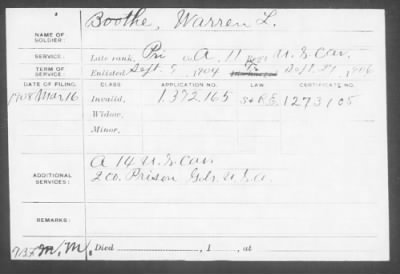 NAME OF SOLDIER: Boothe, Warren L.
SERVICE: Late rank, Pri Co. A, 11 Reg't U.S. Cav.
TERM OF SERVICE: Enlisted Sept. 9, 1904 Dis. Sept. 29, 1906
DATE OF FILING. CLASS APPLICATION NO. LAW CERTIFICATE NO.
1908 Mar 16 Invalid, 1,372,165 1273105
Widow,
Minor,
ADDITIONAL SERVICES: A 14 U.S. Cav
2 Co. Prison Gds. U.S.A.
REMARKS:
M.M. Died , 1 , at